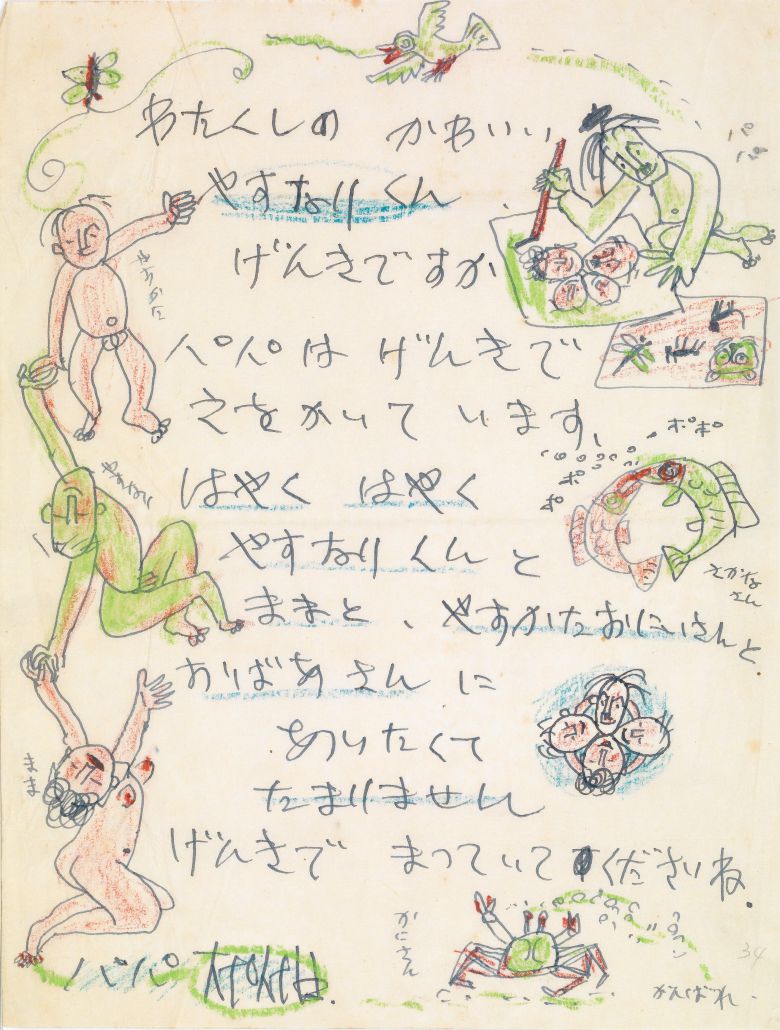 わたくしの かわいい
やすなりくん
げんきですか
パパは げんきで
えをかいて います、
はやく はやく
やすなりくんと
ままと、やすかたおにいさんと
おばあさんに
あいたくて
たまりません
げんきで まっていてくださいね.
パパ
パパ
やすかた
やすなり
まま
ポポ
ポ
ポ
さかなさん
かにさん
がんばれ
34